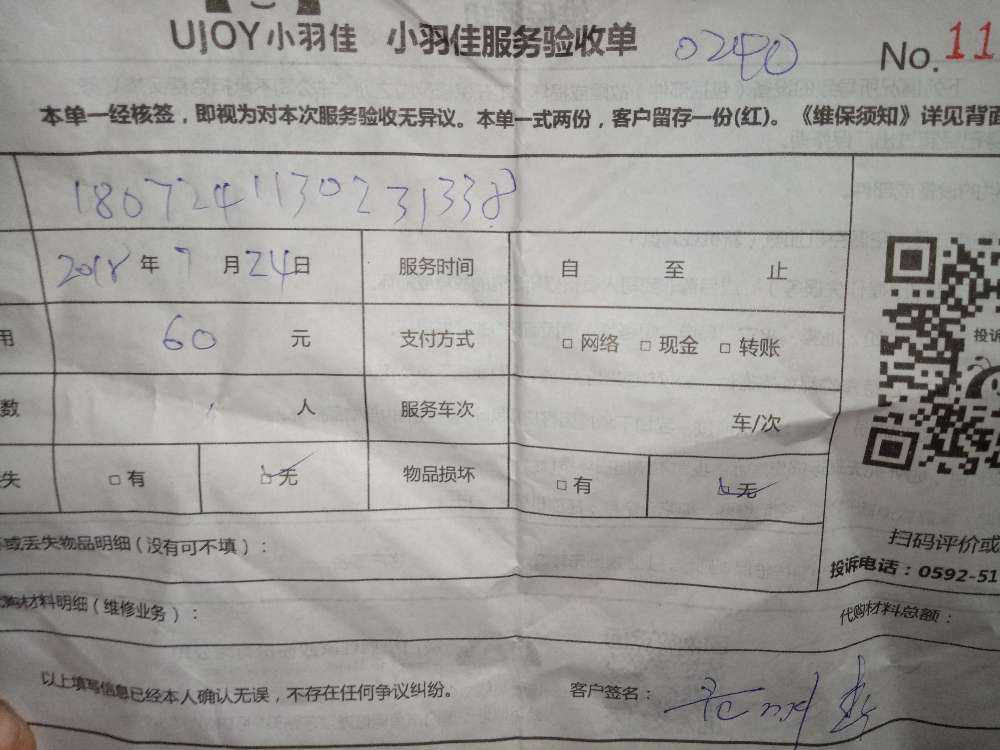 UJOY小羽佳 小羽佳服务验收单 0240 No.11
本单一经核签，即视为对本次服务验收无异议。本单一式两份，客户留存一份(红)。《维保须知》详见背面
1807241130231338
2018 年 7 月 24 日 服务时间 自 至 止
用 60 元 支付方式 □ 网络 □ 现金 □ 转账
数 人 服务车次 车/次
失 □ 有 □ 无 物品损坏 □ 有 □ 无
投诉
或丢失物品明细（没有可不填）：
扫码评价或
投诉电话：0592-51
购材料明细（维修业务）：
代购材料总额：
以上填写信息已经本人确认无误，不存在任何争议纠纷。
客户签名：